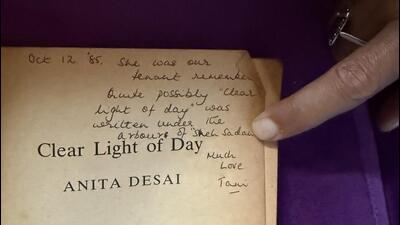 Oct 12 '85. She was our
tenant remember
Quite possibly "Clear
light of day" was
written under the
arbours of "Sneh Sadan"
Much
Love
Clear Light of Day
ANITA DESAI